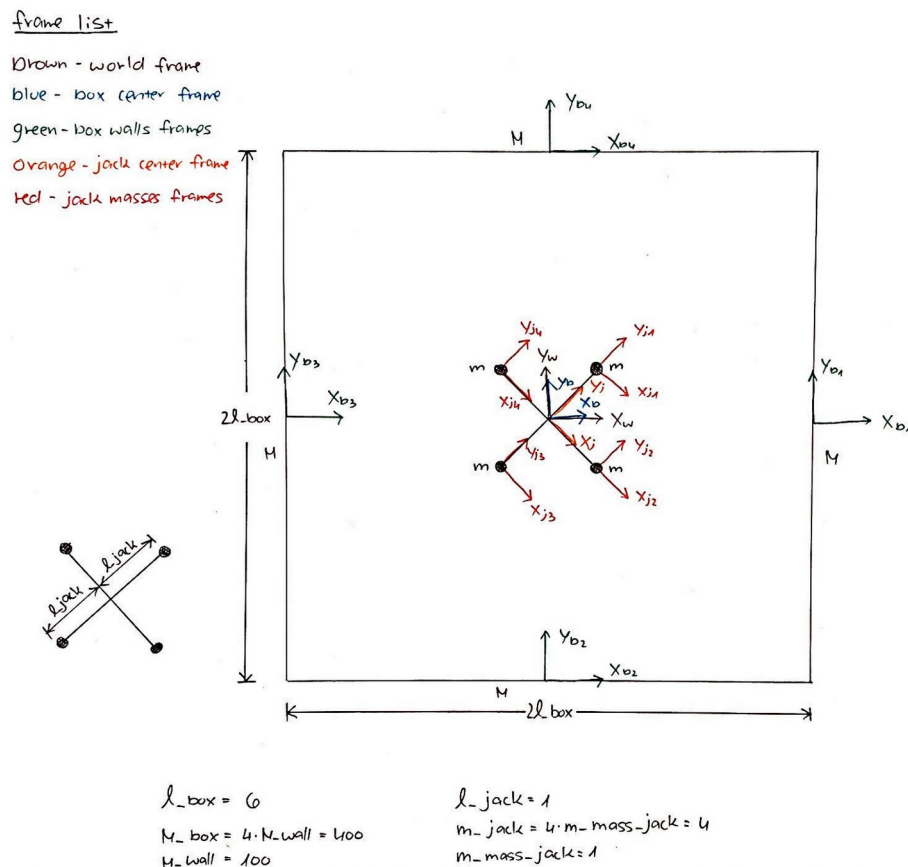 frame list
Brown - world frame
blue - box center frame
green - box walls frames
orange - jack center frame
red - jack masses frames
Y_b4
M
X_b4
Y_j4
Y_j1
m
Y_w
m
Y_b
Y_j
X_j4
X_j1
X_b
X_w
X_j
Y_b3
X_b3
2l_box
M
Y_b1
X_b1
M
Y_j3
Y_j2
m
m
X_j3
X_j2
l_jack
l_jack
Y_b2
X_b2
M
2l_box
l_box = 6
M_box = 4·M_wall = 400
M_wall = 100
l_jack = 1
m_jack = 4·m_mass_jack = 4
m_mass_jack = 1